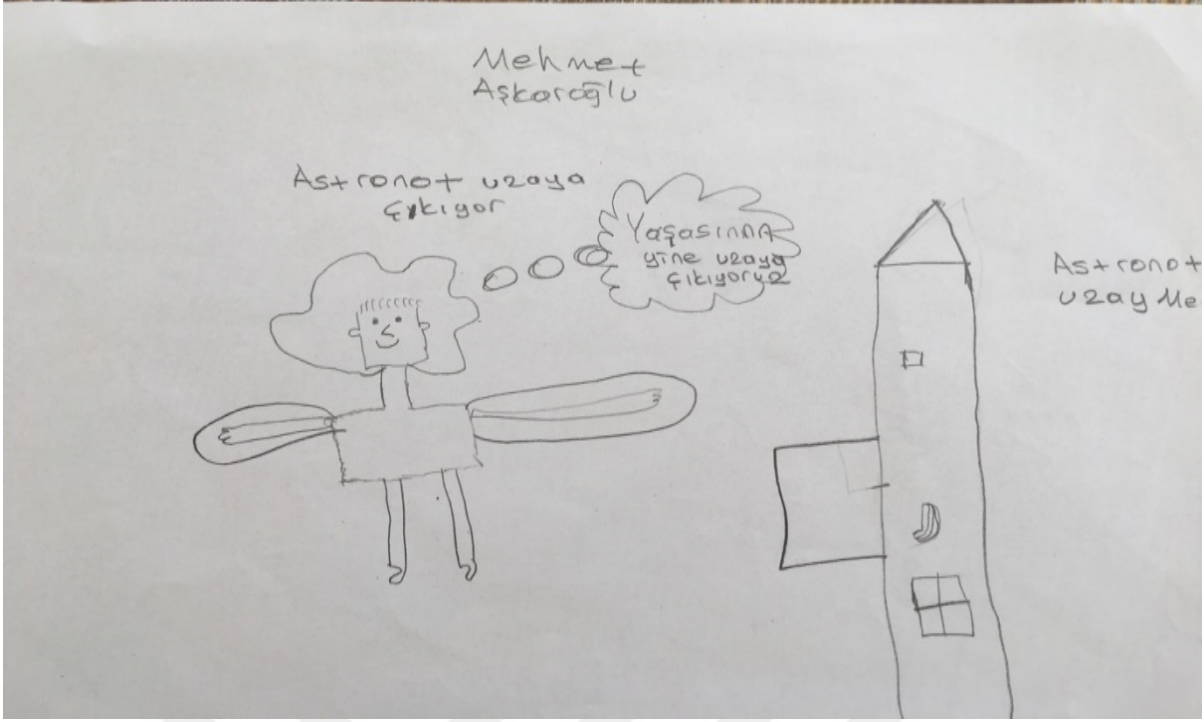 Mehmet
Aşkaroğlu
Astronot uzaya
çıkıyor
Yaşasınnn
yine uzaya
çıkıyoruz
Astronot
uzay Me